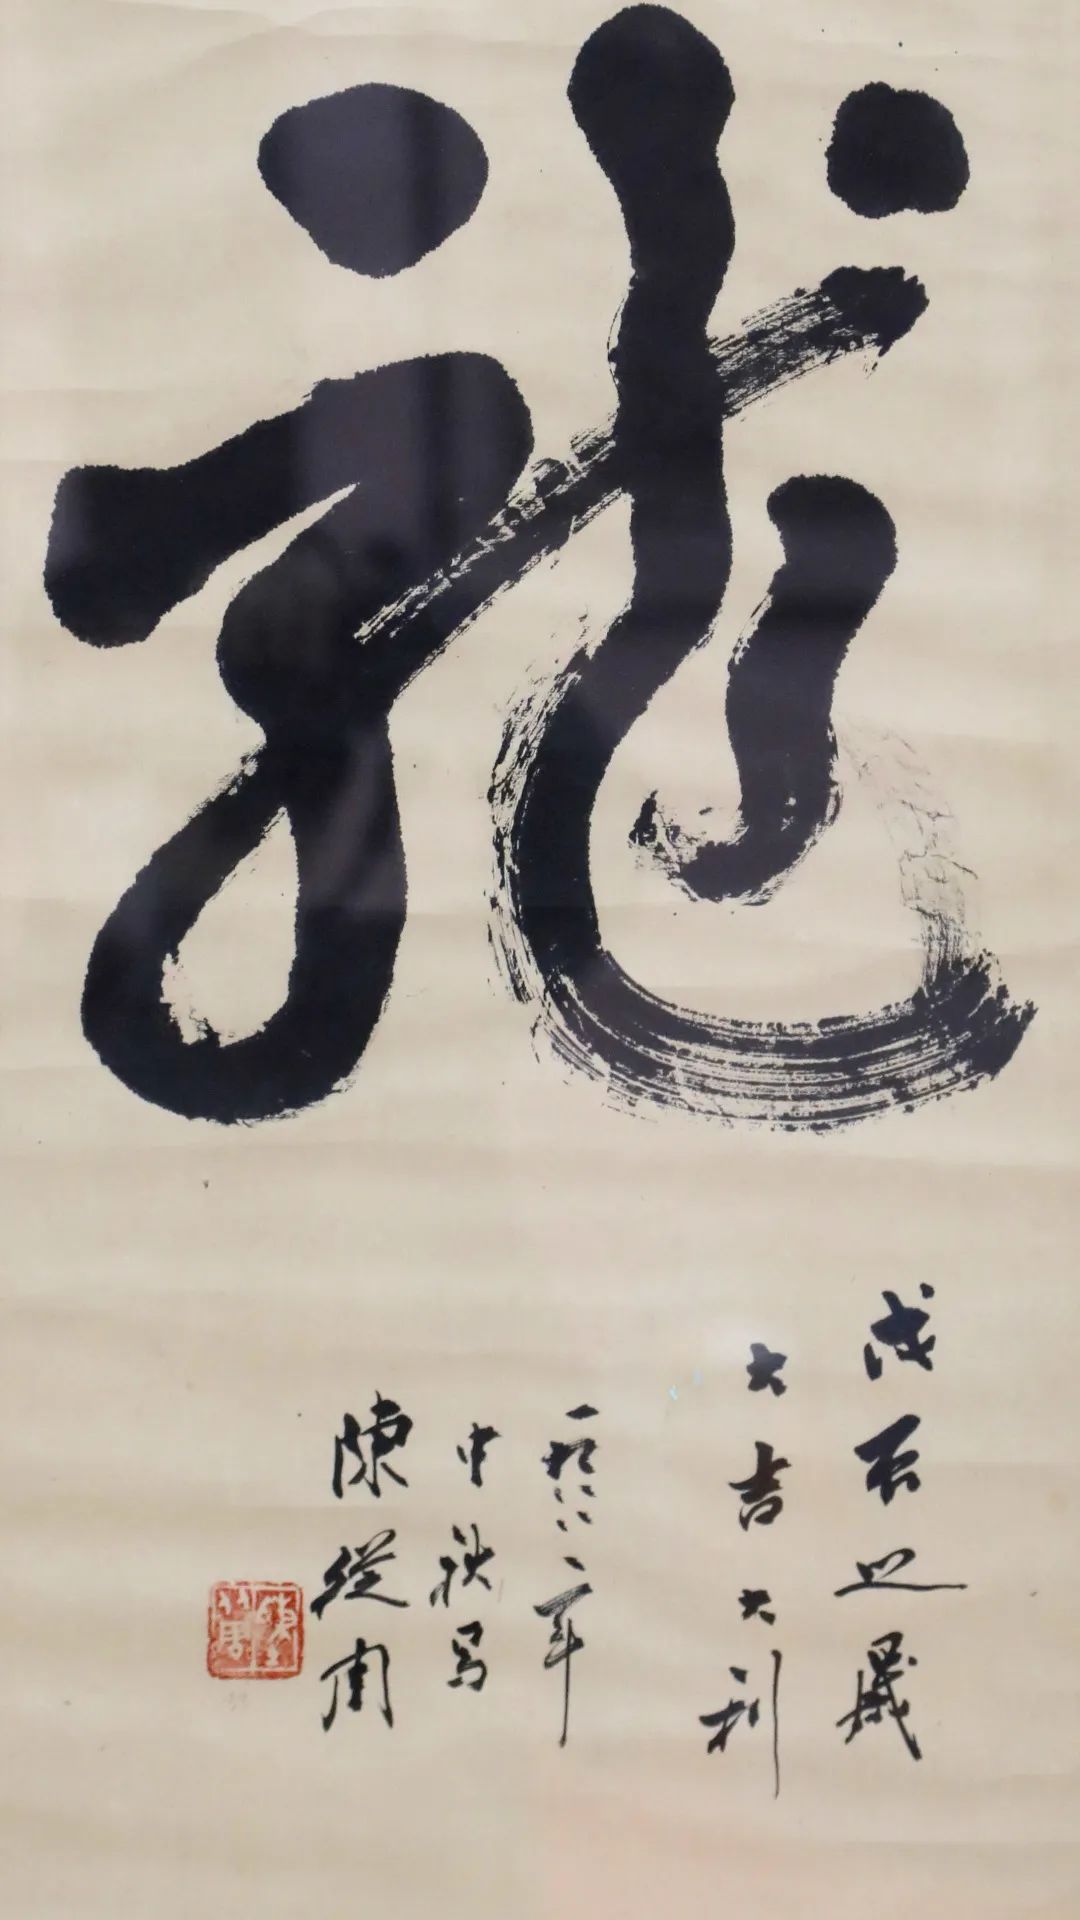 龍
戊辰之歲
大吉大利
一九八八年
中秋写
陳從周
陳从周